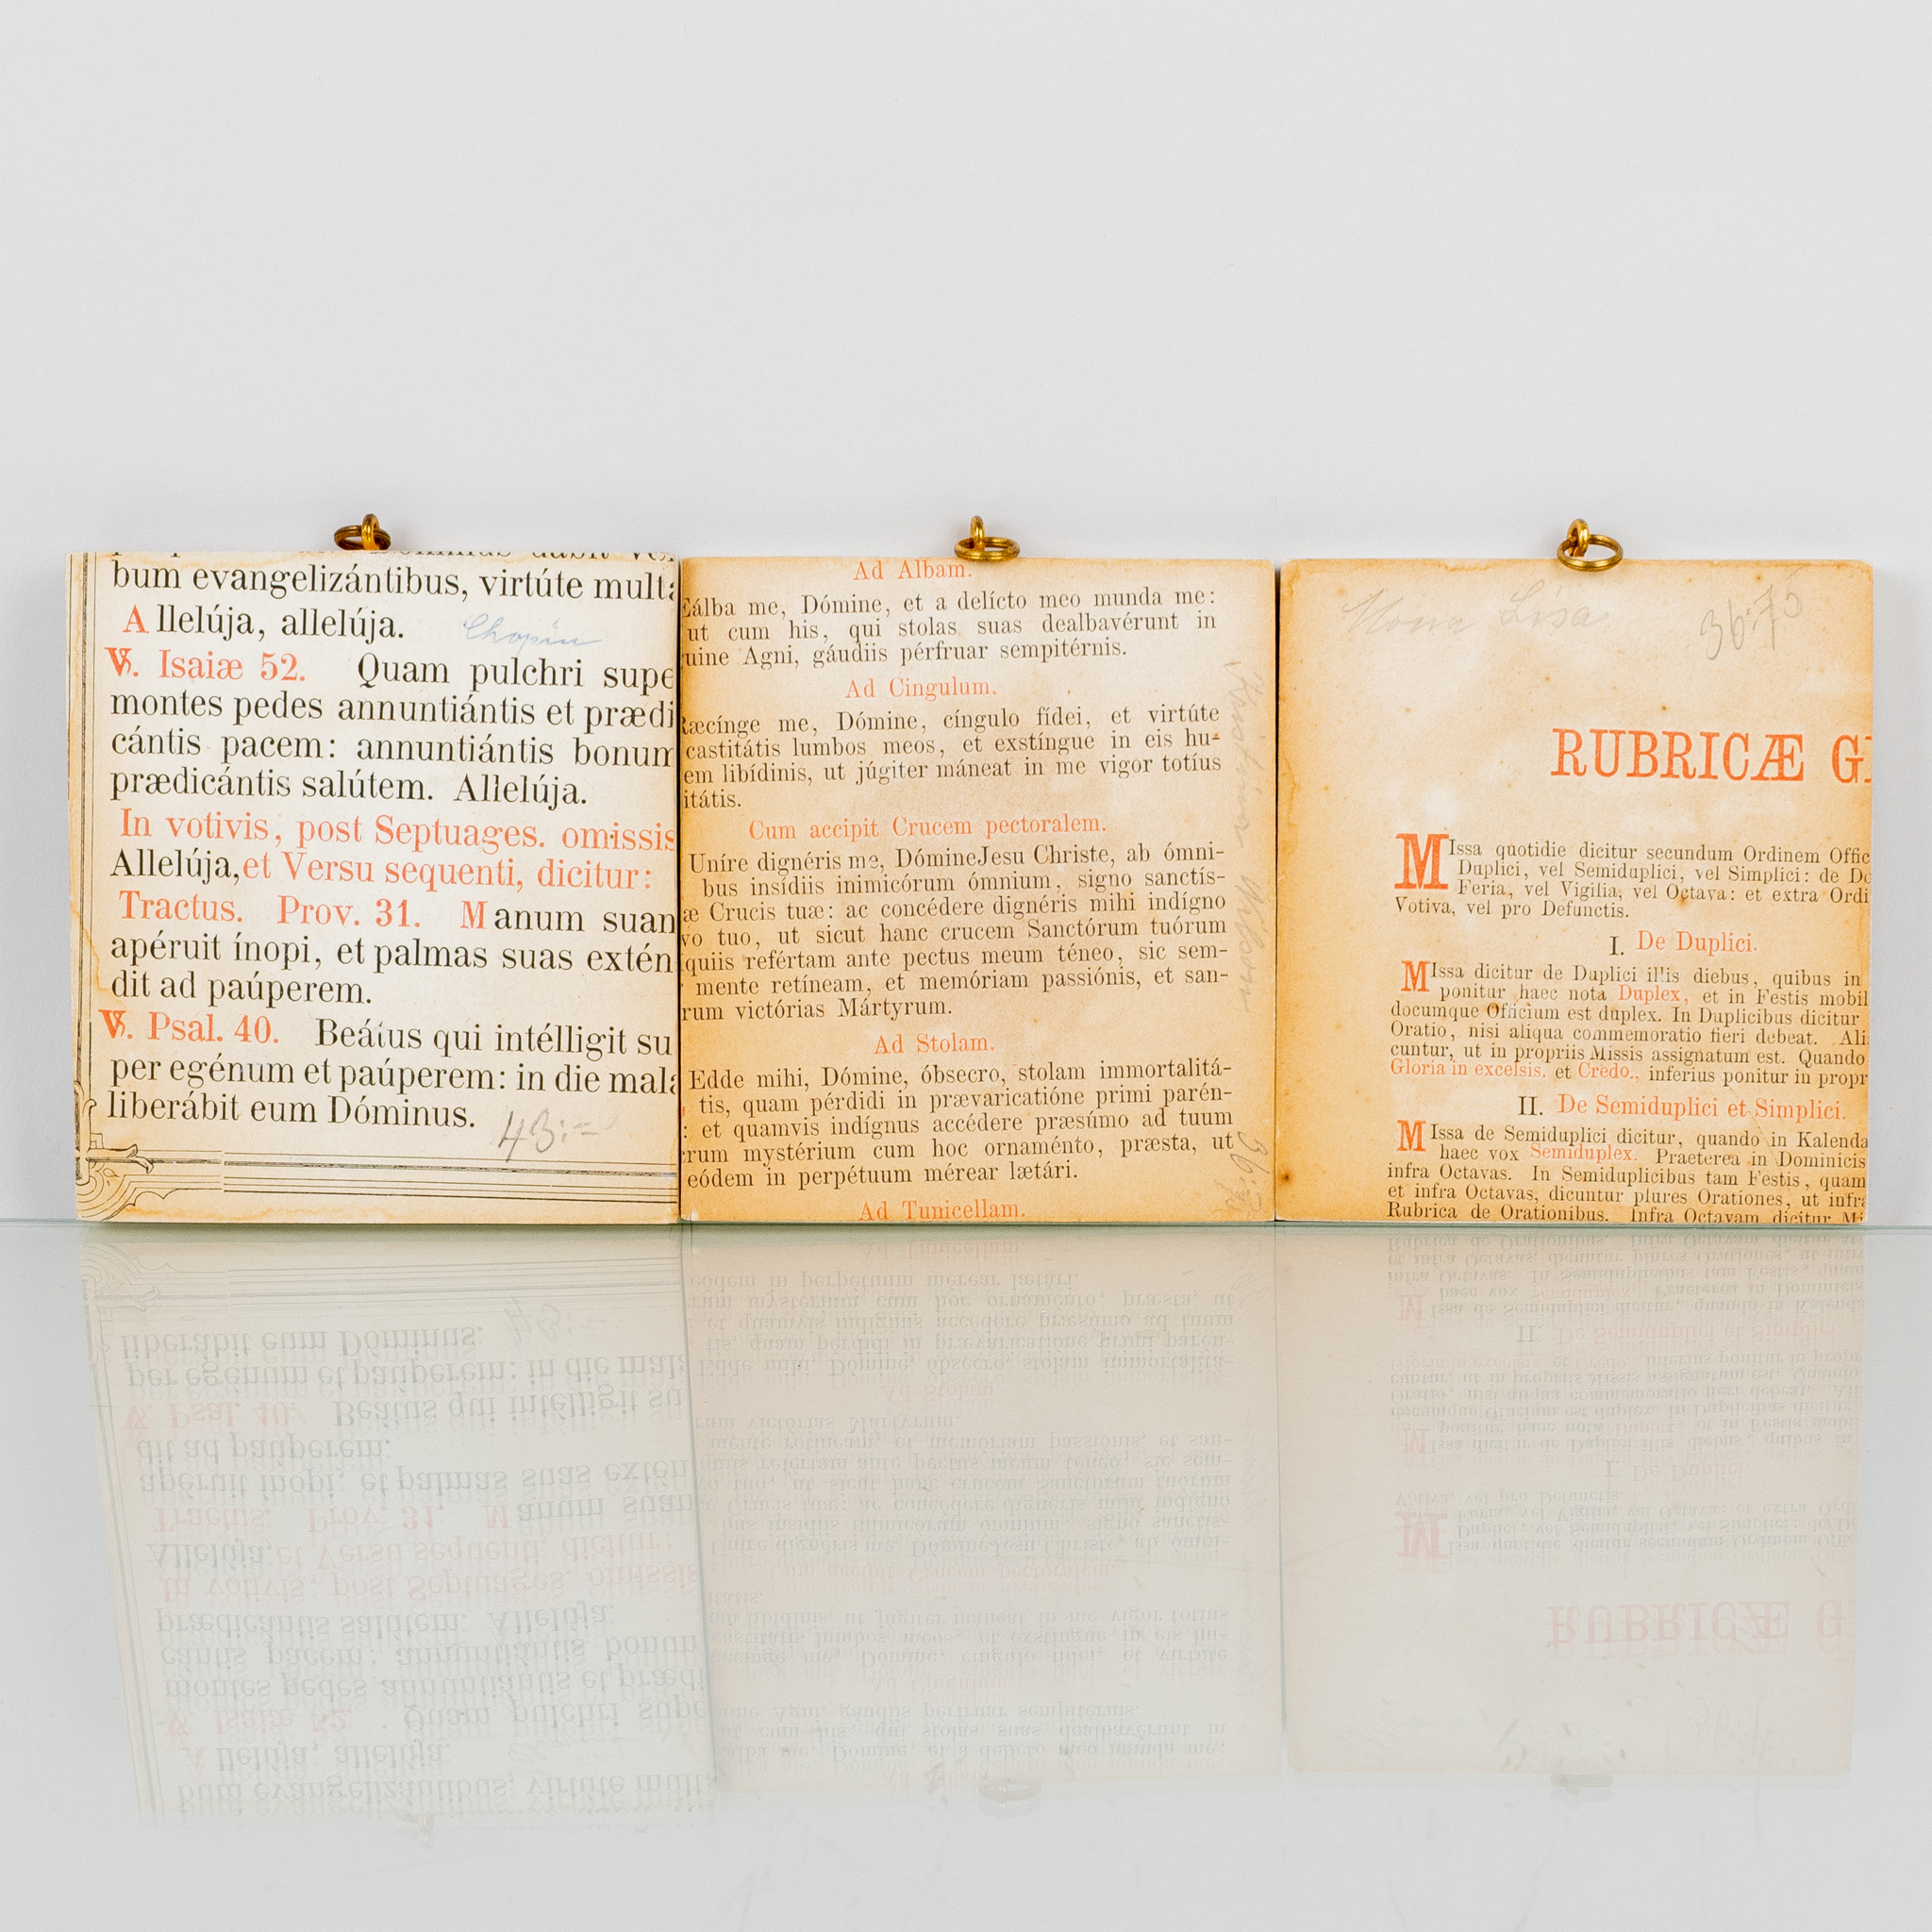 bum evangelizántibus, virtúte mult
Allelúja, allelúja.
Chopin
℣. Isaiæ 52. Quam pulchri supe
montes pedes annuntiántis et prædi
cántis pacem: annuntiántis bonum
prædicántis salútem. Allelúja.
In votivis, post Septuages. omissis
Allelúja, et Versu sequenti, dicitur:
Tractus. Prov. 31. Manum suan
apéruit ínopi, et palmas suas extén
dit ad paúperem.
℣. Psal. 40. Beátus qui intélligit su
per egénum et paúperem: in die mala
liberábit eum Dóminus.
43:-
Ad Albam.
álba me, Dómine, et a delícto meo munda me:
ut cum his, qui stolas suas dealbavérunt in
uine Agni, gáudiis pérfruar sempitérnis.
Ad Cingulum.
æcínge me, Dómine, cíngulo fídei, et virtúte
castitátis lumbos meos, et exstíngue in eis hu-
em libídinis, ut júgiter máneat in me vigor totíus
itátis.
Cum accipit Crucem pectoralem.
Uníre dignéris me, Dómine Jesu Christe, ab ómni-
bus insídiis inimicórum ómnium, signo sanctís-
æ Crucis tuæ: ac concédere dignéris mihi indígno
vo tuo, ut sicut hanc crucem Sanctórum tuórum
quiis refértam ante pectus meum téneo, sic sem-
mente retíneam, et memóriam passiónis, et san-
rum victórias Mártyrum.
Ad Stolam.
Edde mihi, Dómine, óbsecro, stolam immortalitá-
tis, quam pérdidi in prævaricatióne primi parén-
: et quamvis indígnus accédere præsúmo ad tuum
rum mystérium cum hoc ornaménto, præsta, ut
eódem in perpétuum mérear lætári.
Ad Tunicellam.
Mona Lisa
36:75
RUBRICÆ G
MIssa quotidie dicitur secundum Ordinem Offic
Duplici, vel Semiduplici, vel Simplici: de Do
Feria, vel Vigilia, vel Octava: et extra Ordi
Votiva, vel pro Defunctis.
I. De Duplici.
MIssa dicitur de Duplici illis diebus, quibus in
ponitur haec nota Duplex, et in Festis mobil
documque Officium est duplex. In Duplicibus dicitur
Oratio, nisi aliqua commemoratio fieri debeat. Ali
cuntur, ut in propriis Missis assignatum est. Quando
Gloria in excelsis. et Credo., inferius ponitur in propr
II. De Semiduplici et Simplici.
MIssa de Semiduplici dicitur, quando in Kalenda
haec vox Semiduplex. Praeterea in Dominicis
infra Octavas. In Semiduplicibus tam Festis, quam
et infra Octavas, dicuntur plures Orationes, ut infra
Rubrica de Orationibus. Infra Octavam dicitur Mi